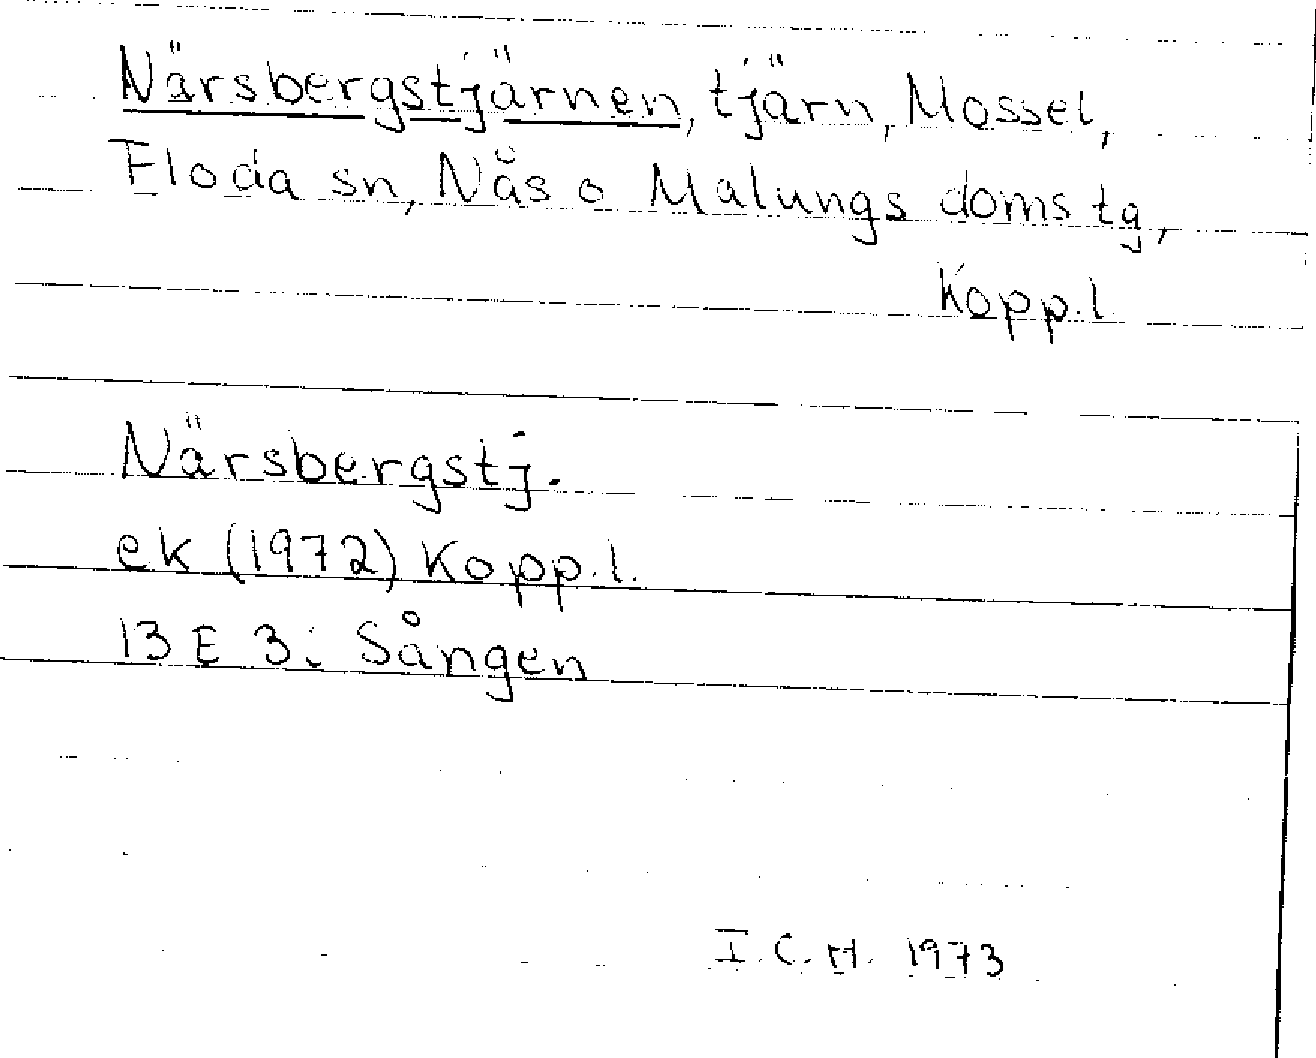 Närsbergstjärnen, tjärn, Mossel,
Floda sn, Nås o Malungs doms tg,
Kopp.l
Närsbergstj.
ek (1972) Kopp.l.
13 E 3i Sången
I.C.H. 1973